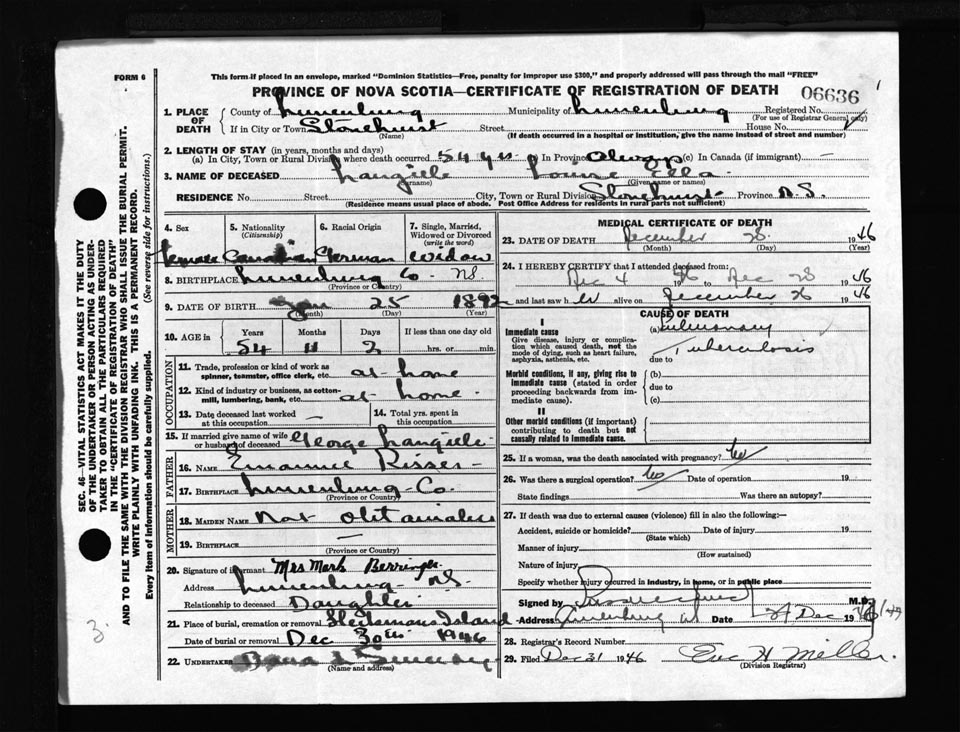 FORM 6
This form if placed in an envelope, marked "Dominion Statistics—Free, penalty for improper use $300," and properly addressed will pass through the mail "FREE"
PROVINCE OF NOVA SCOTIA—CERTIFICATE OF REGISTRATION OF DEATH
06636
1. PLACE OF DEATH County of Lunenburg Municipality of Lunenburg Registered No.
(For use of Registrar General only)
If in City or Town Stonehurst Street House No.
(Name) (If death occurred in a hospital or institution, give the name instead of street and number)
2. LENGTH OF STAY (in years, months and days)
(a) In City, Town or Rural Division where death occurred 54 yrs (b) In Province Always (c) In Canada (if immigrant) —
3. NAME OF DECEASED Langille Louise Ella
(Surname) (Given name or names)
RESIDENCE No. Street City, Town or Rural Division Stonehurst Province N.S.
(Residence means usual place of abode. Post Office Address for residents in rural parts not sufficient)
4. Sex 5. Nationality (Citizenship) 6. Racial Origin 7. Single, Married, Widowed or Divorced (write the word)
Female Canadian German Widow
8. BIRTHPLACE Lunenburg Co. N.S.
(Province or County)
9. DATE OF BIRTH Jan 25 1892
(Month) (Day) (Year)
10. AGE in Years Months Days If less than one day old
54 11 3 hrs. or min.
OCCUPATION
11. Trade, profession or kind of work as spinner, teamster, office clerk, etc. at home
12. Kind of industry or business, as cotton-mill, lumbering, bank, etc. at home.
13. Date deceased last worked at this occupation — 14. Total yrs. spent in this occupation
15. If married give name of wife or husband of deceased George Langille
FATHER
16. NAME Risser
17. BIRTHPLACE Lunenburg Co.
(Province or County)
MOTHER
18. MAIDEN NAME Not Obtainable
19. BIRTHPLACE —
(Province or County)
20. Signature of informant Mrs Mark Berringer
Address Lunenburg N.S.
Relationship to deceased Daughter
21. Place of burial, cremation or removal Island
Date of burial or removal Dec 30th 1946
22. UNDERTAKER
(Name and address)
MEDICAL CERTIFICATE OF DEATH
23. DATE OF DEATH December 28 1946
(Month) (Day) (Year)
24. I HEREBY CERTIFY that I attended deceased from:
Dec 4 1946 to Dec 28 1946
and last saw her alive on December 26 1946
CAUSE OF DEATH
I
Immediate cause
Give disease, injury or complication which caused death, not the mode of dying, such as heart failure, asphyxia, asthenia, etc.
(a) Pulmonary
due to Tuberculosis
Morbid conditions, if any, giving rise to immediate cause (stated in order proceeding backwards from immediate cause).
(b)
due to
(c)
II
Other morbid conditions (if important) contributing to death but not causally related to immediate cause.
25. If a woman, was the death associated with pregnancy? No
26. Was there a surgical operation? No Date of operation 19
State findings Was there an autopsy?
27. If death was due to external causes (violence) fill in also the following:—
Accident, suicide or homicide? Date of injury 19
(State which)
Manner of injury
(How sustained)
Nature of injury
Specify whether injury occurred in industry, in home, or in public place
Signed by M.D.
Address Lunenburg Date Dec 19
28. Registrar's Record Number
29. Filed Dec 31 1946 Eric H Miller.
(Division Registrar)
SEC. 46—VITAL STATISTICS ACT MAKES IT THE DUTY
OF THE UNDERTAKER OR PERSON ACTING AS UNDER-
TAKER TO OBTAIN ALL THE PARTICULARS REQUIRED
IN THE "CERTIFICATE OF REGISTRATION OF DEATH"
AND TO FILE THE SAME WITH THE DIVISION REGISTRAR WHO SHALL ISSUE THE BURIAL PERMIT.
WRITE PLAINLY WITH UNFADING INK. THIS IS A PERMANENT RECORD.
Every item of information should be carefully supplied. (See reverse side for instructions.)
3.